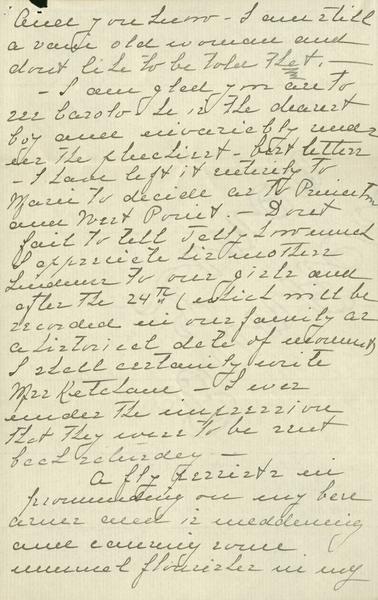 And you know - I am still
a vain old woman and
dont like to be told that. —
- I am glad you are to
see he is the dearest
boy and invariably under
on the - best letter
- I have left it entirely to
Marie to decide as to Princeton
and West Point. - Dont
fail to tell how much
I appreciate his mother
kindness to our girls and
after the 24th (which will be
recorded in our family as
a historical date of moment)
I shall certainly write
Mrs Ketcham - I was
under the impression
that they were to be sent
back Saturday —
A fly persists in
promenading on my bare
arms and is maddening
and causing some
unusual flourishes in my